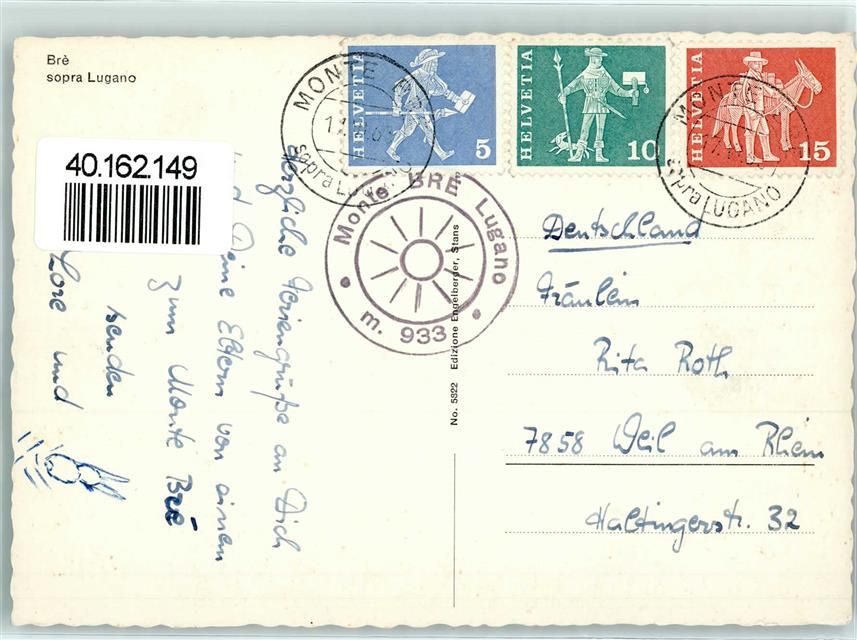 Brè
sopra Lugano
40.162.149
HELVETIA
5
HELVETIA
10
HELVETIA
15
MONTE
sopra LUGANO
MONTE
sopra LUGANO
Monte BRÈ Lugano
m. 933
Herzliche Feriengrüße an Dich
und Deine Eltern von einem
zum Monte Brè
senden
Lore und
No. 5322 Edizione Engelberger, Stans
Deutschland
Fräulein
Rita Roth
7858 Weil am Rhein
Haltingerstr. 32